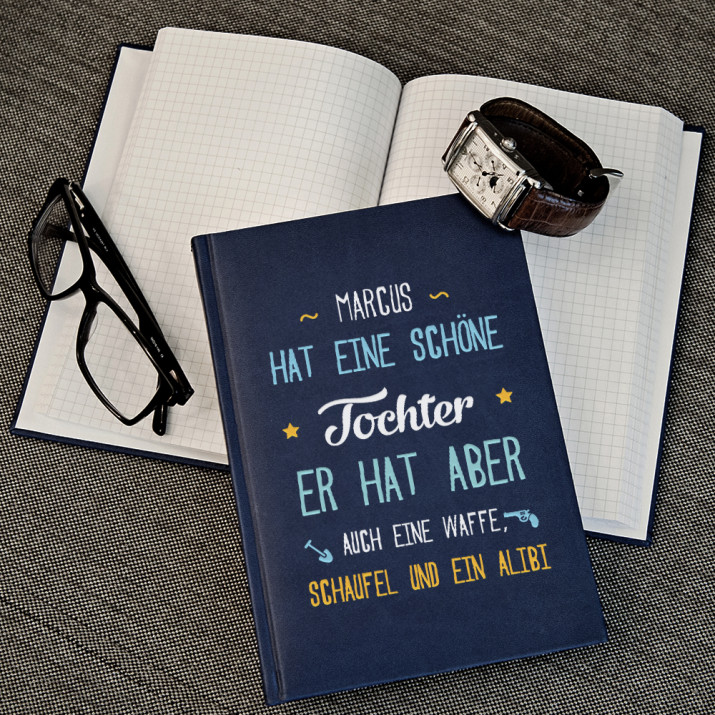 MARCUS
HAT EINE SCHÖNE
Tochter
ER HAT ABER
AUCH EINE WAFFE,
SCHAUFEL UND EIN ALIBI